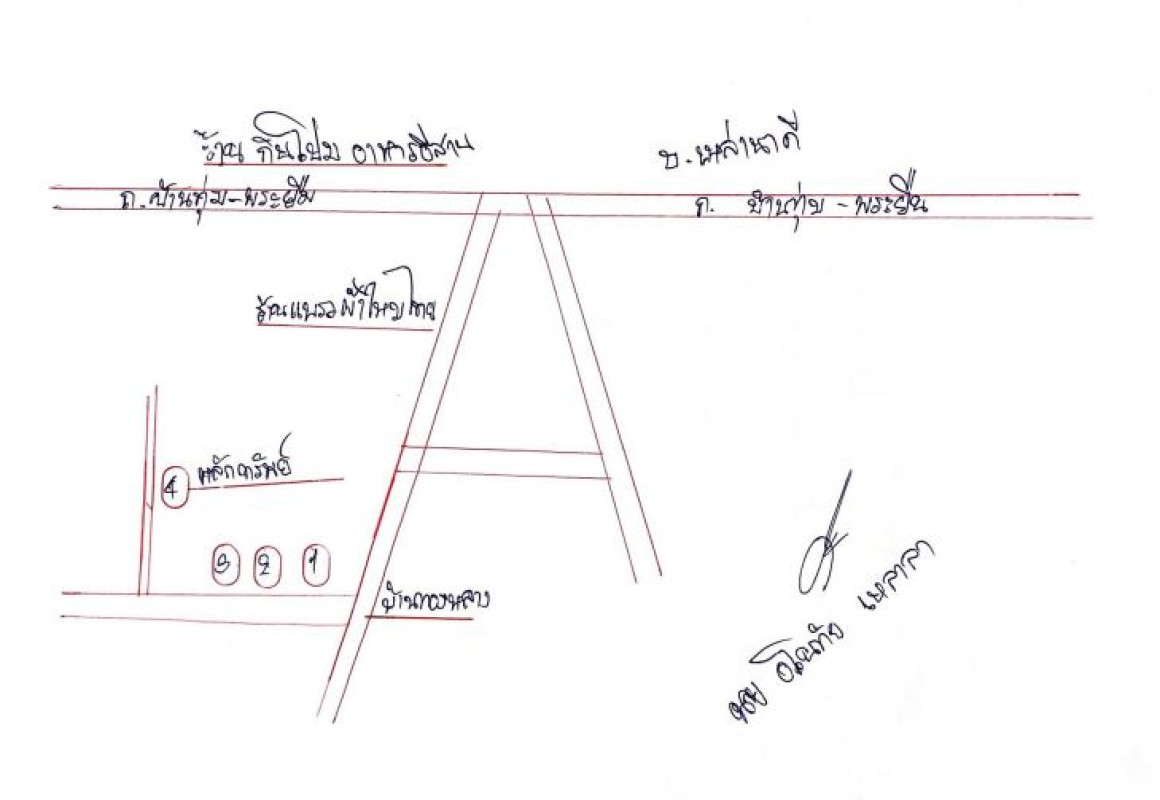 ร้าน กินโปม อาหารอีสาน
บ.เหล่านาดี
ถ.บ้านทุ่ม-พระยืน
ถ. บ้านทุ่ม - พระยืน
ร้านแพรวผ้าไหมไทย
4 หลักทรัพย์
3 2 1
บ้านทองหลาง
นาย เหลาลา